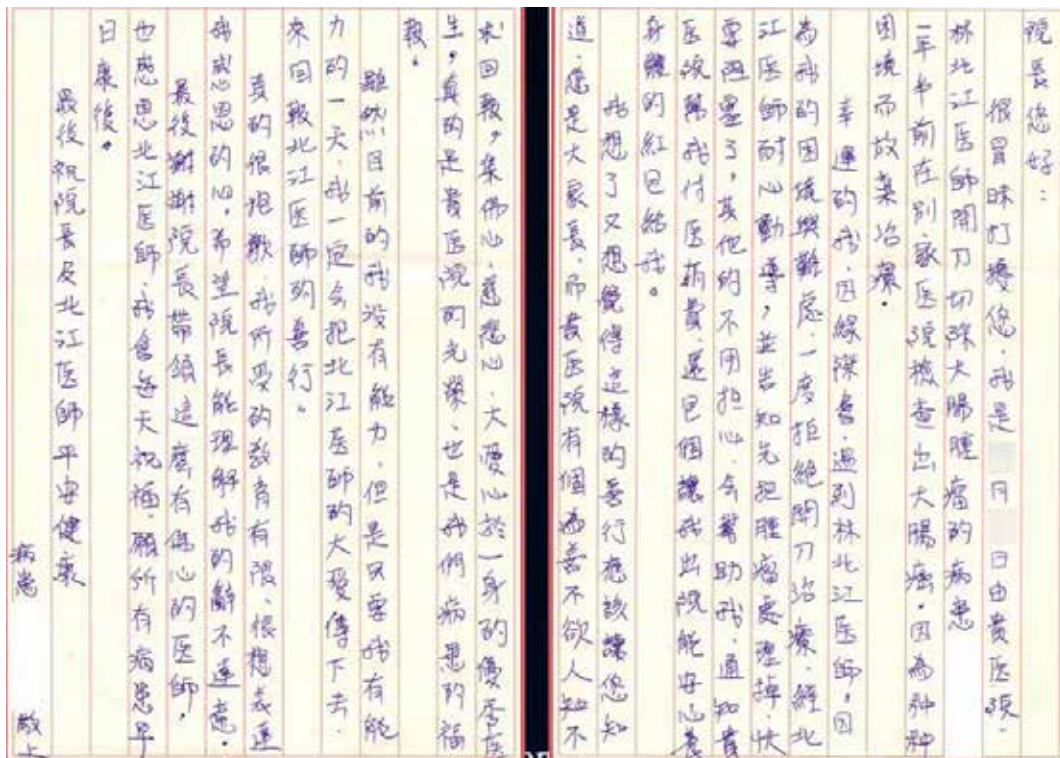 院長您好：
很冒昧打擾您，我是 月 日由貴医院
林北江医師開刀切除大腸腫瘤的病患
一年半前在別家医院檢查出大腸癌，因為种种
困境而放棄治療。
幸運的我，因緣際會，遇到林北江医師，因
為我的困境與難處，一度拒絕開刀治療，經北
江医師耐心勸導，並告知先把腫瘤處理掉，快
要阻塞了，其他的不用担心，会幫助我，通知貴
医院幫我付医葯費，還包個讓我出院能安心養
身體的紅包給我。
我想了又想覺得這樣的善行應該讓您知
道，您是大家長，而貴医院有個為善不欲人知不
求回報，集佛心、慈悲心、大愛心於一身的優秀医
生，真的是貴医院的光榮、也是我們病患的福
報。
雖然目前的我沒有能力，但是只要我有能
力的一天，我一定会把北江医師的大愛傳下去，
來回報北江医師的善行。
真的很抱歉，我所受的教育有限、很想表達
我感恩的心，希望院長能理解我的辭不達意。
最後謝謝院長帶領這麼有佛心的医師，
也感恩北江医師，我會每天祝福，願所有病患早
日康復。
最後祝院長及北江医師平安健康
病患 敬上